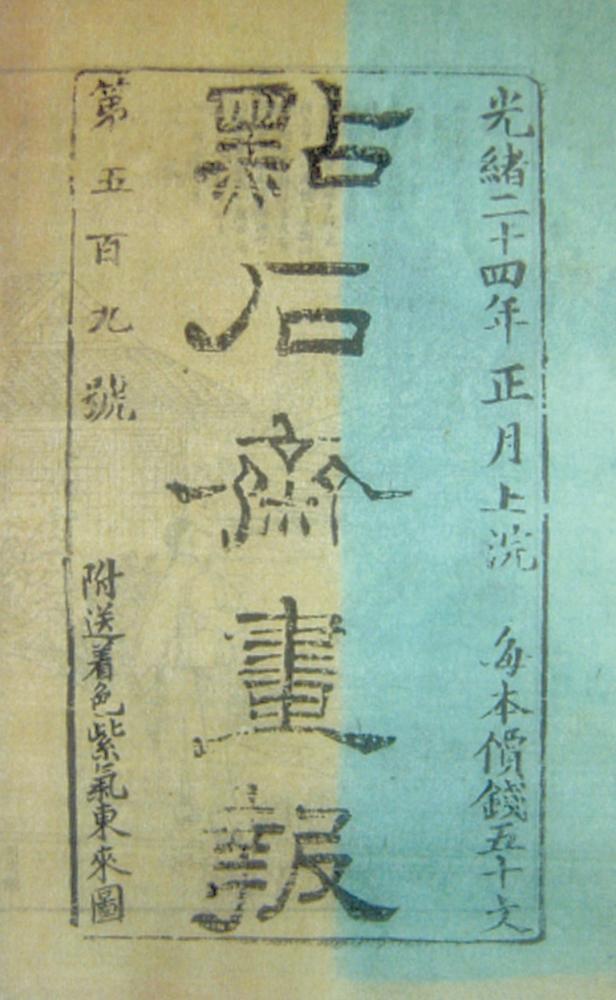 光緒二十四年正月上浣 每本價錢五十文
點石齋畫報
第五百九號 附送着色紫氣東來圖